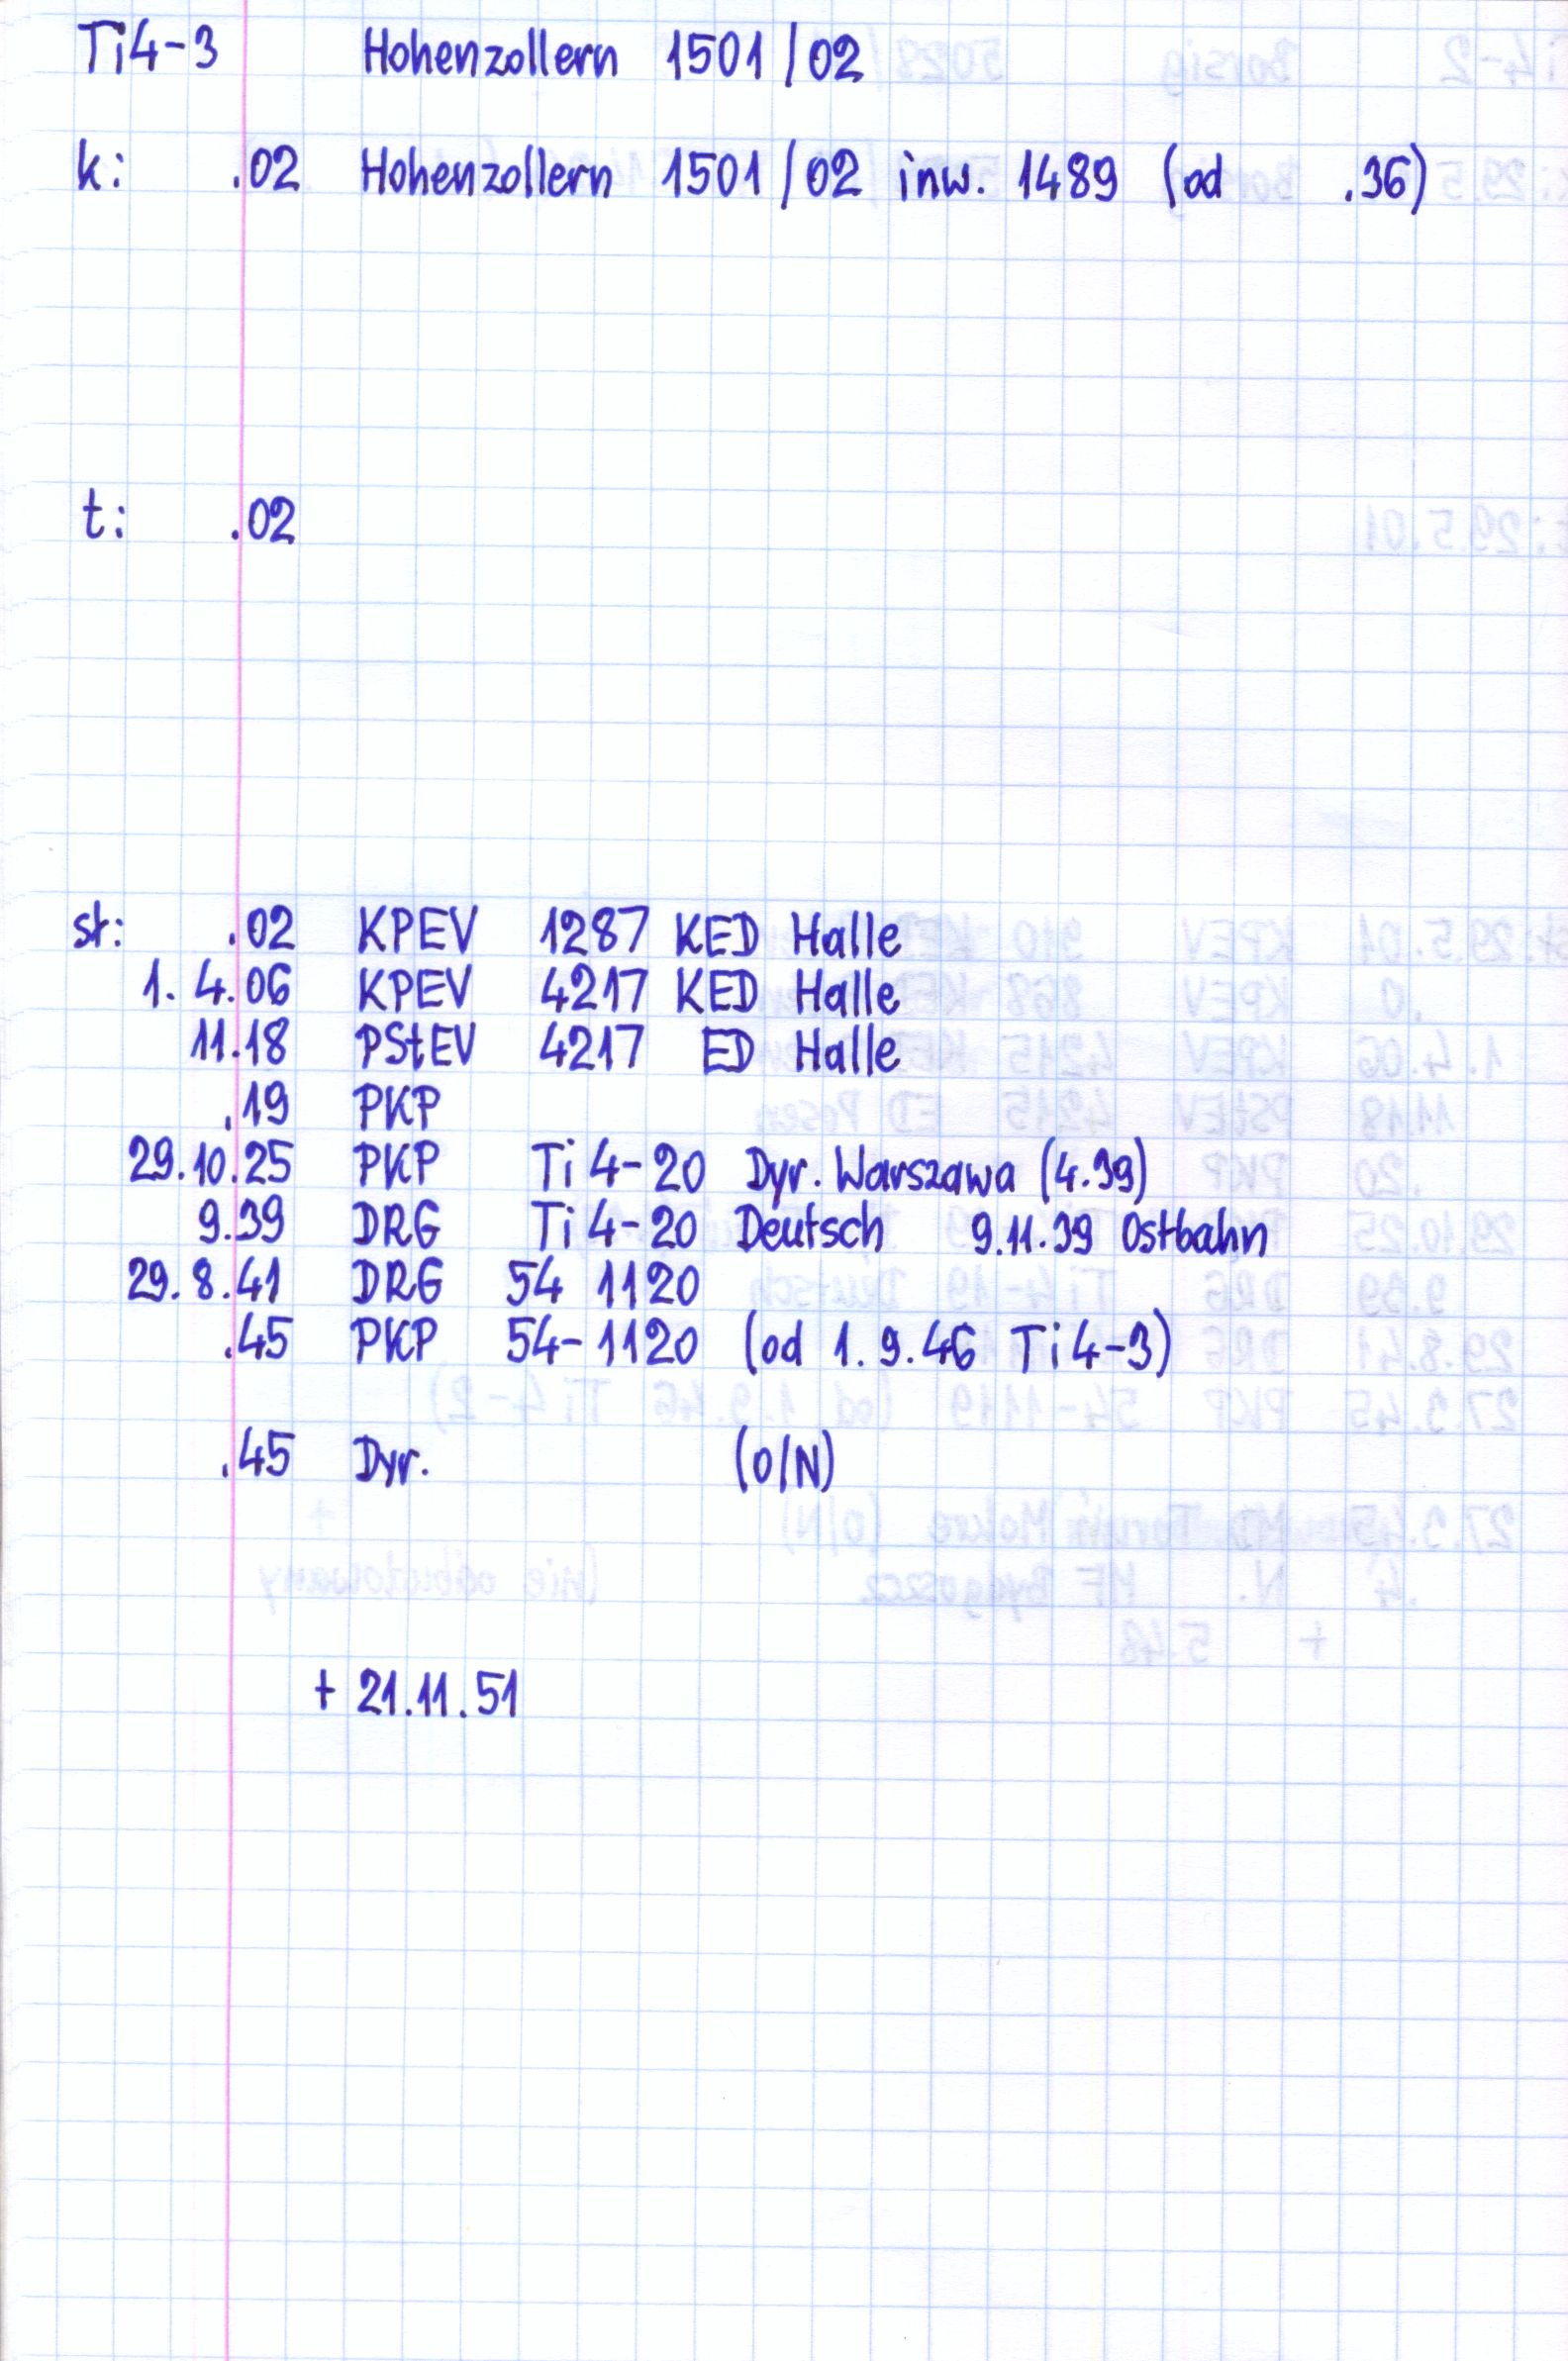 Ti4-3 Hohenzollern 1501/02
k: .02 Hohenzollern 1501/02 inw. 1489 (od .36)
t: .02
st: .02 KPEV 1287 KED Halle
1. 4.06 KPEV 4217 KED Halle
11.18 PStEV 4217 ED Halle
.19 PKP
29.10.25 PKP Ti4-20 Dyr. Warszawa (4.39)
9.39 DRG Ti4-20 Deutsch 9.11.39 Ostbahn
29.8.41 DRG 54 1120
.45 PKP 54-1120 (od 1.9.46 Ti4-3)
.45 Dyr. (O/N)
+ 21.11.51